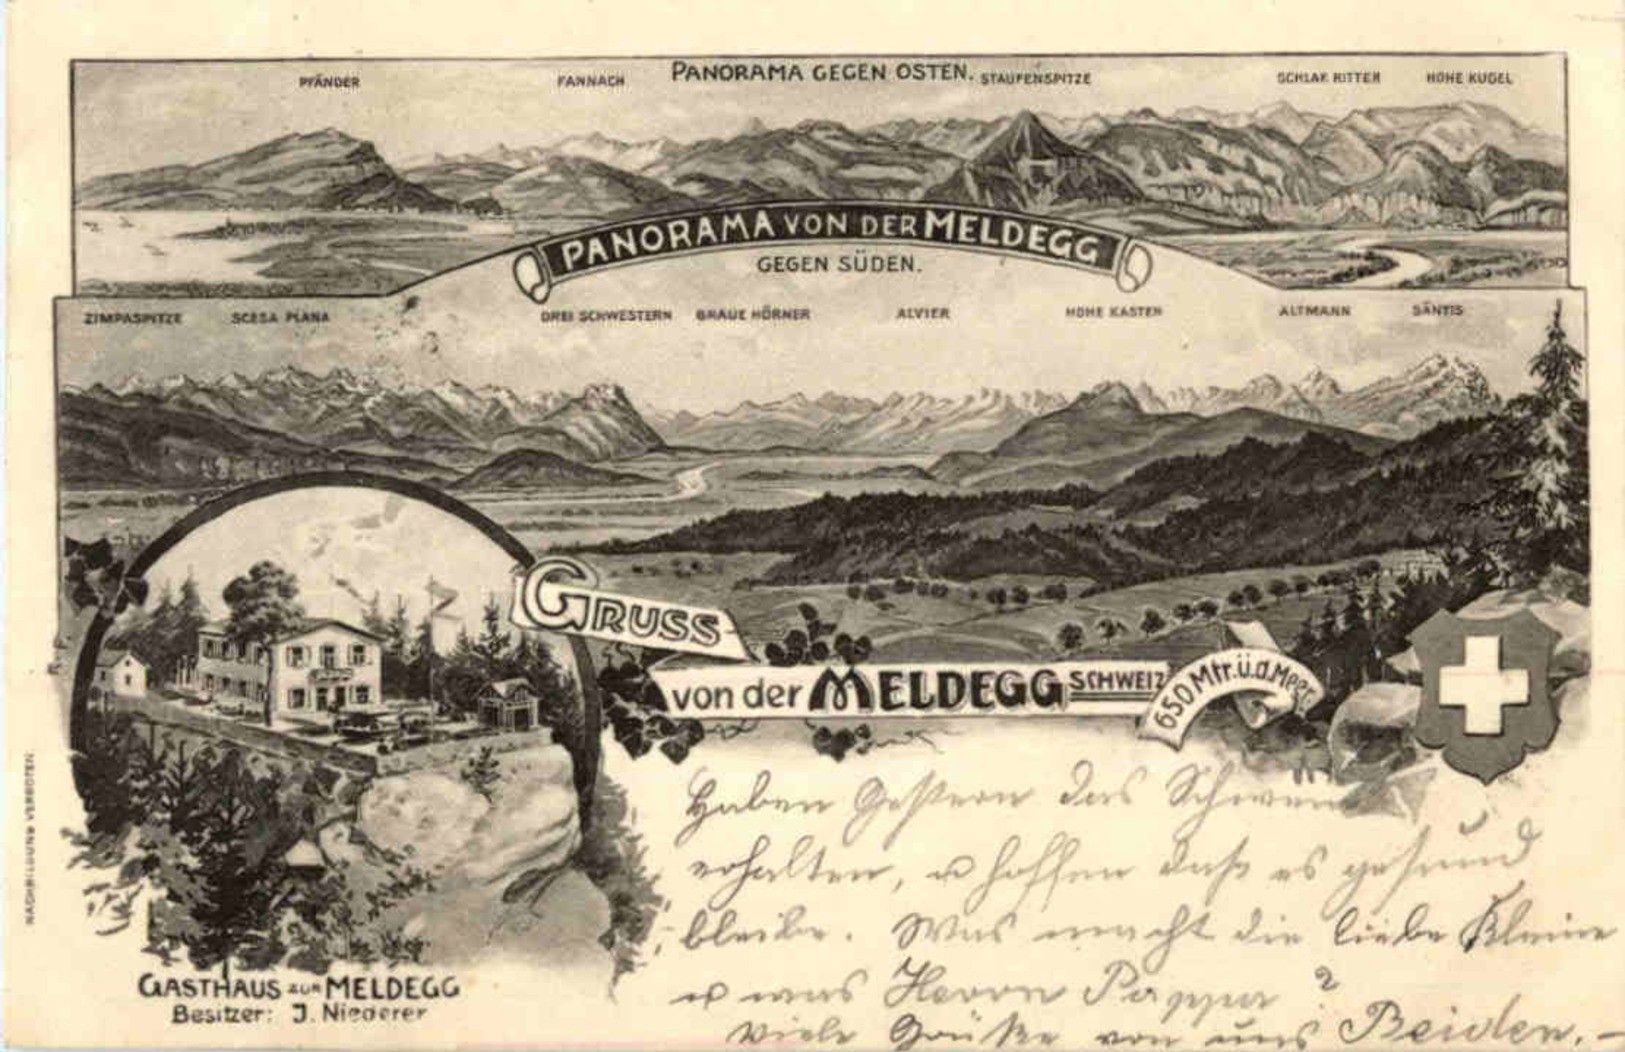 PANORAMA GEGEN OSTEN.
PFÄNDER FANNACH STAUFENSPITZE SCHLAF. RITTER HOHE KUGEL
PANORAMA VON DER MELDEGG
GEGEN SÜDEN.
ZIMPASPITZE SCESA PLANA DREI SCHWESTERN GRAUE HÖRNER ALVIER HOHE KASTEN ALTMANN SÄNTIS
GRUSS
von der MELDEGG SCHWEIZ
650 Mtr. ü. d. Meer.
Haben Gestern das
erhalten, u hoffen daß es gesund
bleibe. Was macht die liebe Kleine
u was Herrn Pappa?
Viele Grüße von uns Beiden.-
GASTHAUS ZUR MELDEGG
Besitzer: J. Niederer
NACHBILDUNG VERBOTEN.